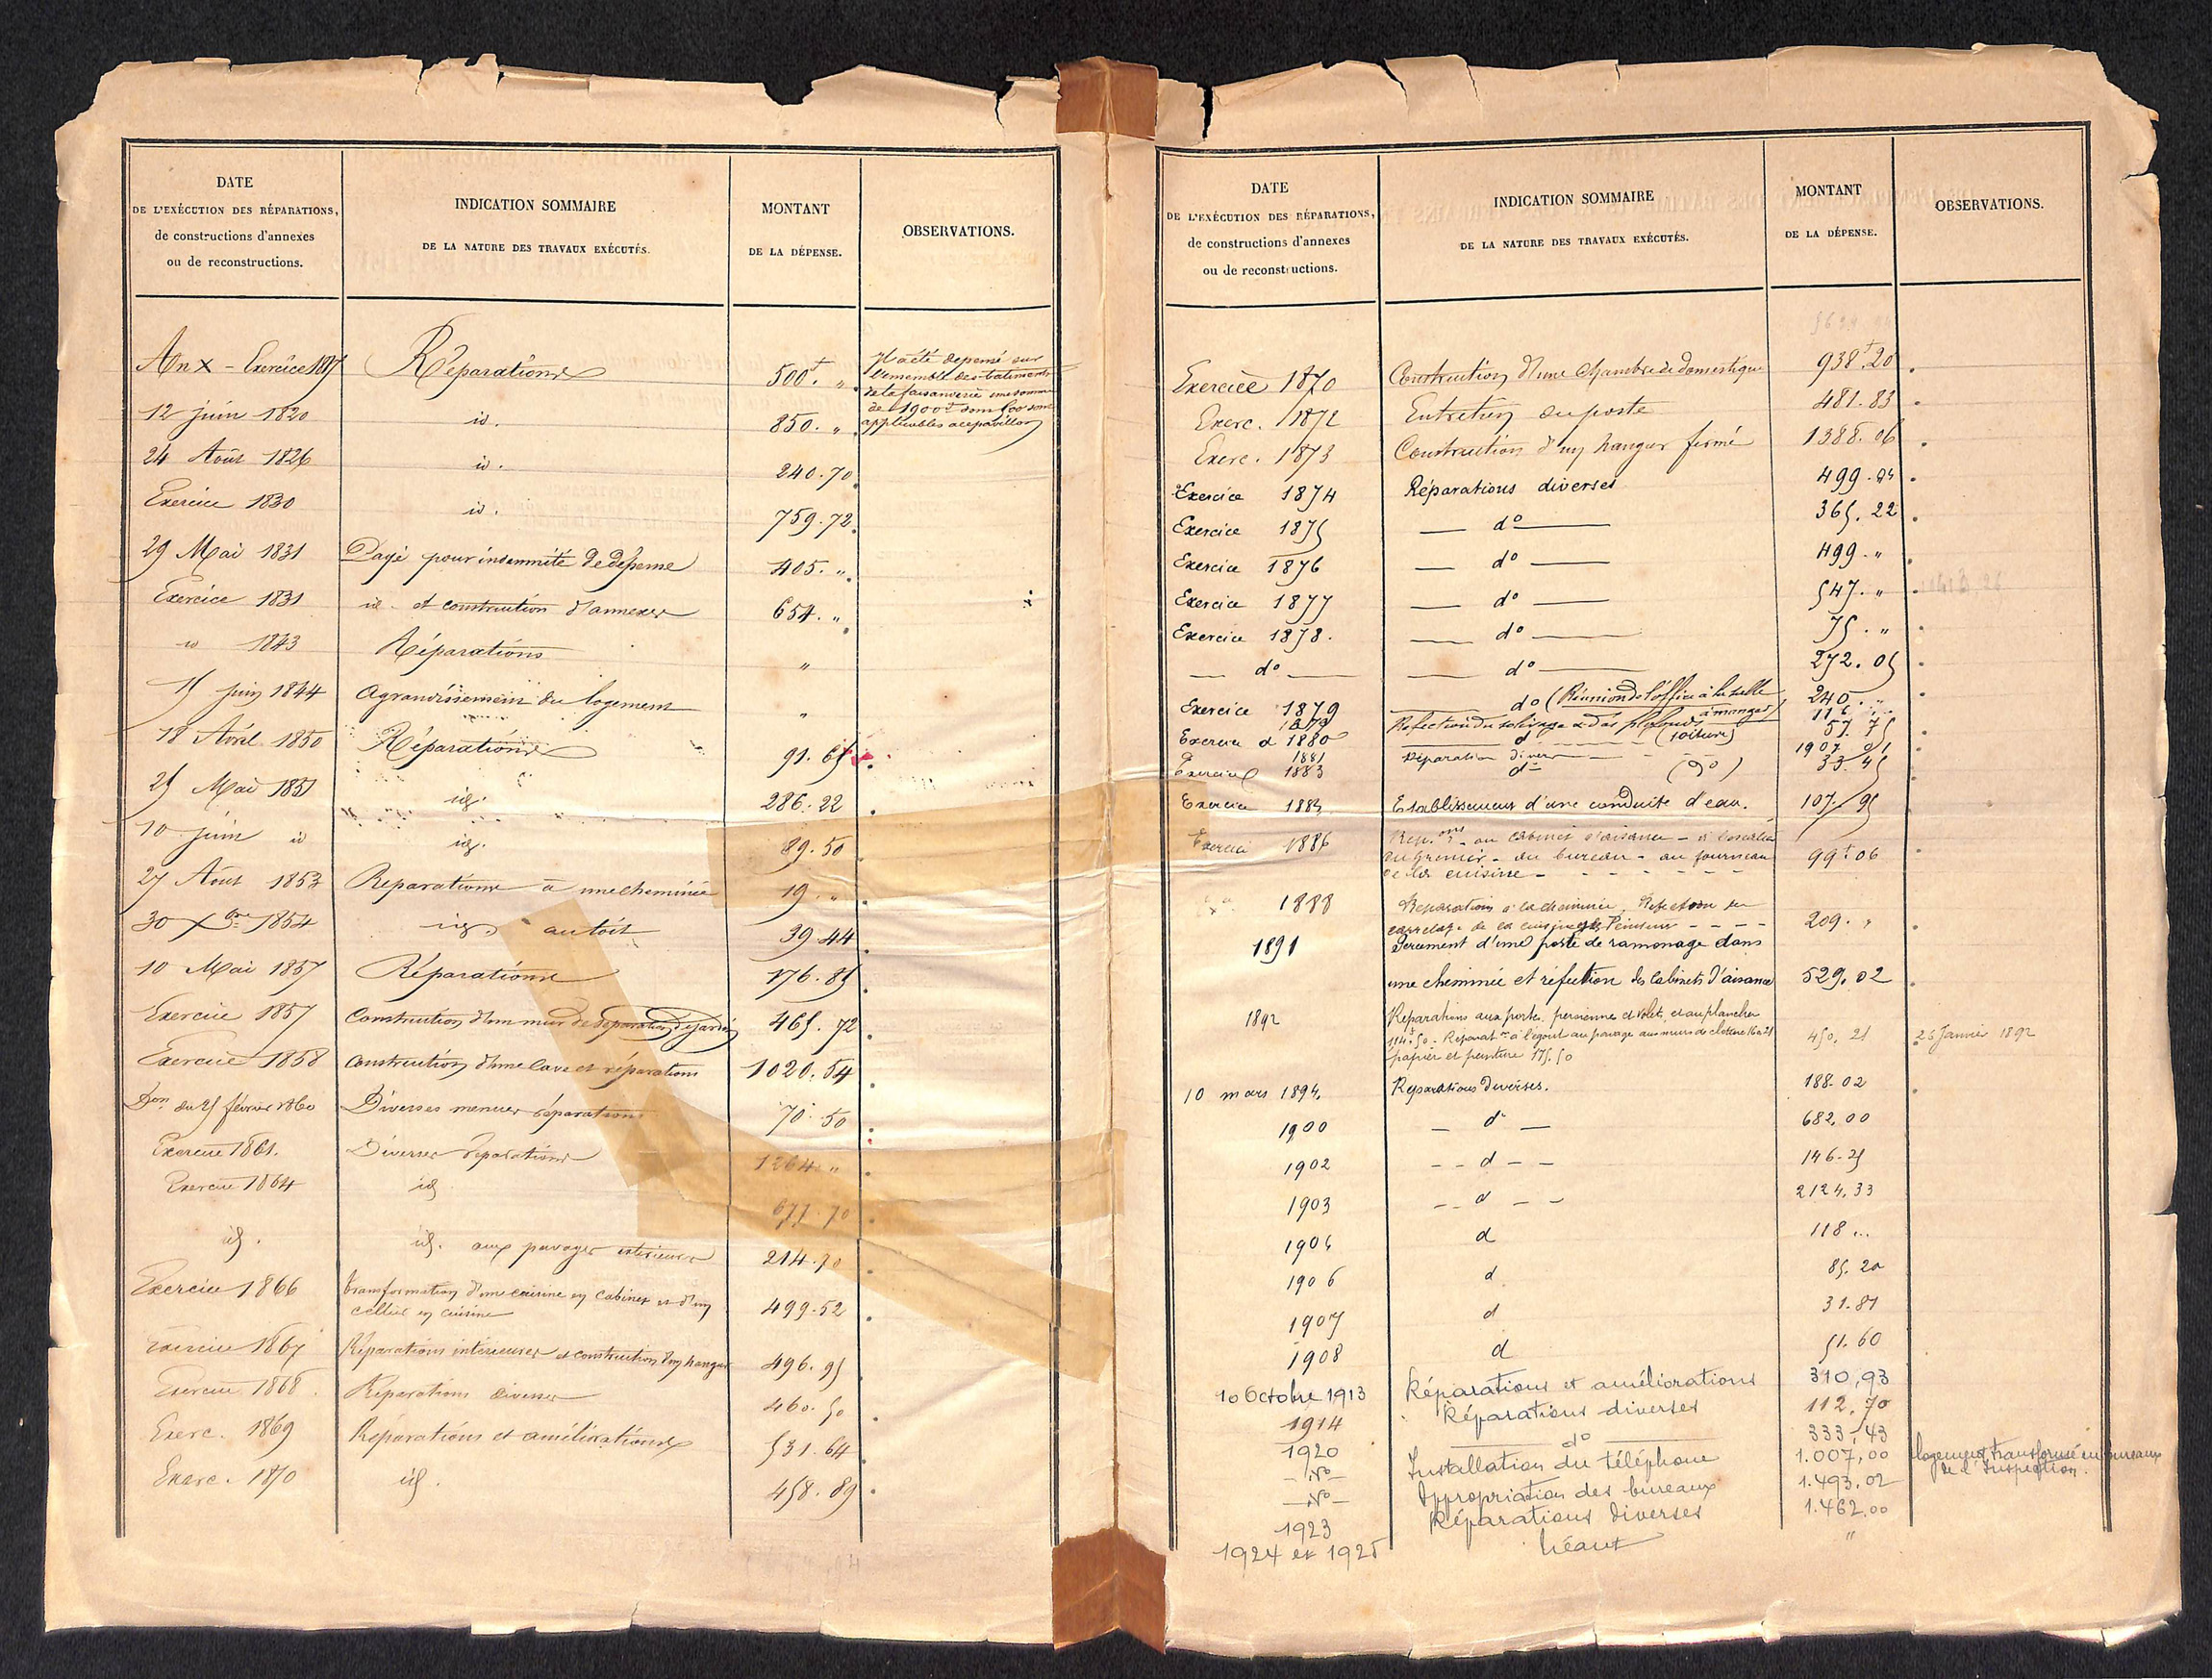 DATE
DE L'EXÉCUTION DES RÉPARATIONS,
de constructions d'annexes
ou de reconstructions.
INDICATION SOMMAIRE
DE LA NATURE DES TRAVAUX EXÉCUTÉS.
MONTANT
DE LA DÉPENSE.
OBSERVATIONS.
An X - Exercice Réparations 500f. „
Il a été dépensé sur
l'ensemble des batiments
de la faisanderie une somme
de 1900f dont 500 sont
applicables à ce pavillon
12 juin 1820 id. 850. „
24 Août 1826 id. 240.70
Exercice 1830 id. 759.72
29 Mai 1831 Payé pour indemnité de dépense 405. „
Exercice 1831 id. et construction d'annexes 654. „
id 1843 Réparations „
15 juin 1844 Agrandissement du logement „
18 Avril 1850 Réparations 91.65
25 Mai 1851 id. 286.22
10 juin id id. 89.50
27 Août 1853 Réparations à une cheminée 19. „
30 Xbre 1854 id. au toit 39.44
10 Mai 1857 Réparations 176.85
Exercice 1857 Construction d'un mur de séparation de jardin 465.72
Exercice 1858 Construction d'une cave et réparations 1020.54
Don du 25 février 1860 Diverses menues réparations 70.50
Exercice 1861. Diverses réparations 1264 „
Exercice 1864 id 677.70
id. id. aux pavages extérieurs 214.70
Exercice 1866 Transformation d'une cuisine en cabinet et d'un
cellier en cuisine 499.52
Exercice 1867 Réparations intérieures et construction d'un hangar 496.95
Exercice 1868. Réparations diverses 460.50
Exerc. 1869 Réparations et améliorations 531.64
Exerc. 1870 id. 458.89
DATE
DE L'EXÉCUTION DES RÉPARATIONS,
de constructions d'annexes
ou de reconstructions.
INDICATION SOMMAIRE
DE LA NATURE DES TRAVAUX EXÉCUTÉS.
MONTANT
DE LA DÉPENSE.
OBSERVATIONS.
Exercice 1870 Construction d'une chambre de domestique 938f.20
Exerc. 1872 Entretien du poste 481.83
Exerc. 1873 Construction d'un hangar fermé 1388.06
Exercice 1874 Réparations diverses 499.
Exercice 1875 — do — 365.22
Exercice 1876 — do — 499. „
Exercice 1877 — do — 547. „
Exercice 1878. — do — 75. „
— do — — do — 272.05
Exercice 1879 do (Réunion de l'office à la salle 240. „
à manger)
1879 Réfection du solivage & des plafonds 116
Exercice d 1880 d (toiture) 57.75
1881 Réparation divers 1907.91
Exercice 1883 do (do) 33.45
Exercice 1883 Etablissement d'une conduite d'eau. 107.95
Exercice 1886 Repons au cabinet d'aisance - à l'escalier
du grenier - du bureau - au fourneau 99f06
de la cuisine - - - - - - -
1888 Réparations à la cheminée. Réfection du
carrelage de la cuisine - - - - 209. „
1891 Percement d'une porte de ramonage dans
une cheminée et réfection des cabinets d'aisance 529.02
1892 Réparations aux portes, persiennes et volets, et au plancher
114f.50 - Réparatons à l'égout au pavage aux murs de cloture 160.21 450,21 26 Janvier 1892
papier et peinture 175.50
10 mars 1894. Réparations diverses. 188.02
1900 — d — 682,00
1902 - - d - - 146.25
1903 - - d - - 2124,33
d 118 „
1906 d 85.20
1907 d 31.81
1908 d 51.60
10 Octobre 1913 Réparations et améliorations 310,93
1914 Réparations diverses 112,70
1920 do 333,43
— do — Installation du téléphone 1.007,00 Logement transformé en bureaux
de l'Inspection.
— do — Appropriation des bureaux 1.493,02
1923 Réparations diverses 1.462,00
1924 et 1925 Néant "